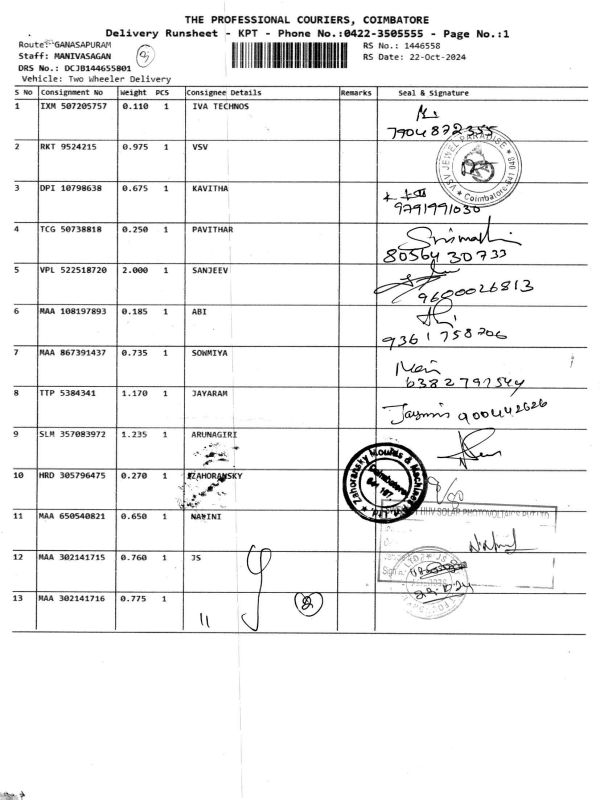 THE PROFESSIONAL COURIERS, COIMBATORE
Delivery Runsheet - KPT - Phone No.:0422-3505555 - Page No.:1
Route: GANASAPURAM
RS No.: 1446558
Staff: MANIVASAGAN
RS Date: 22-Oct-2024
DRS No.: DCJB144655801
Vehicle: Two Wheeler Delivery
S No Consignment No Weight PCS Consignee Details Remarks Seal & Signature
1 IXM 507205757 0.110 1 IVA TECHNOS
7904872355
2 RKT 9524215 0.975 1 VSV
VSV JEWEL PARADISE * Coimbatore-641 048 *
3 DPI 10798638 0.675 1 KAVITHA
9791991030
4 TCG 50738818 0.250 1 PAVITHAR
8056430733
5 VPL 522518720 2.000 1 SANJEEV
9600026813
6 MAA 108197893 0.185 1 ABI
9361758206
7 MAA 867391437 0.735 1 SOWMIYA
Mani
8 TTP 5384341 1.170 1 JAYARAM
9 SLM 357083972 1.235 1 ARUNAGIRI
10 HRD 305796475 0.270 1 ZAHORANSKY
Zahoransky Moulds & Machines Pvt. Ltd. * Coimbatore
11 MAA 650540821 0.650 1 NALINI
HHV SOLAR PHOTOVOLTAICS
12 MAA 302141715 0.760 1 JS
13 MAA 302141716 0.775 1
11
2